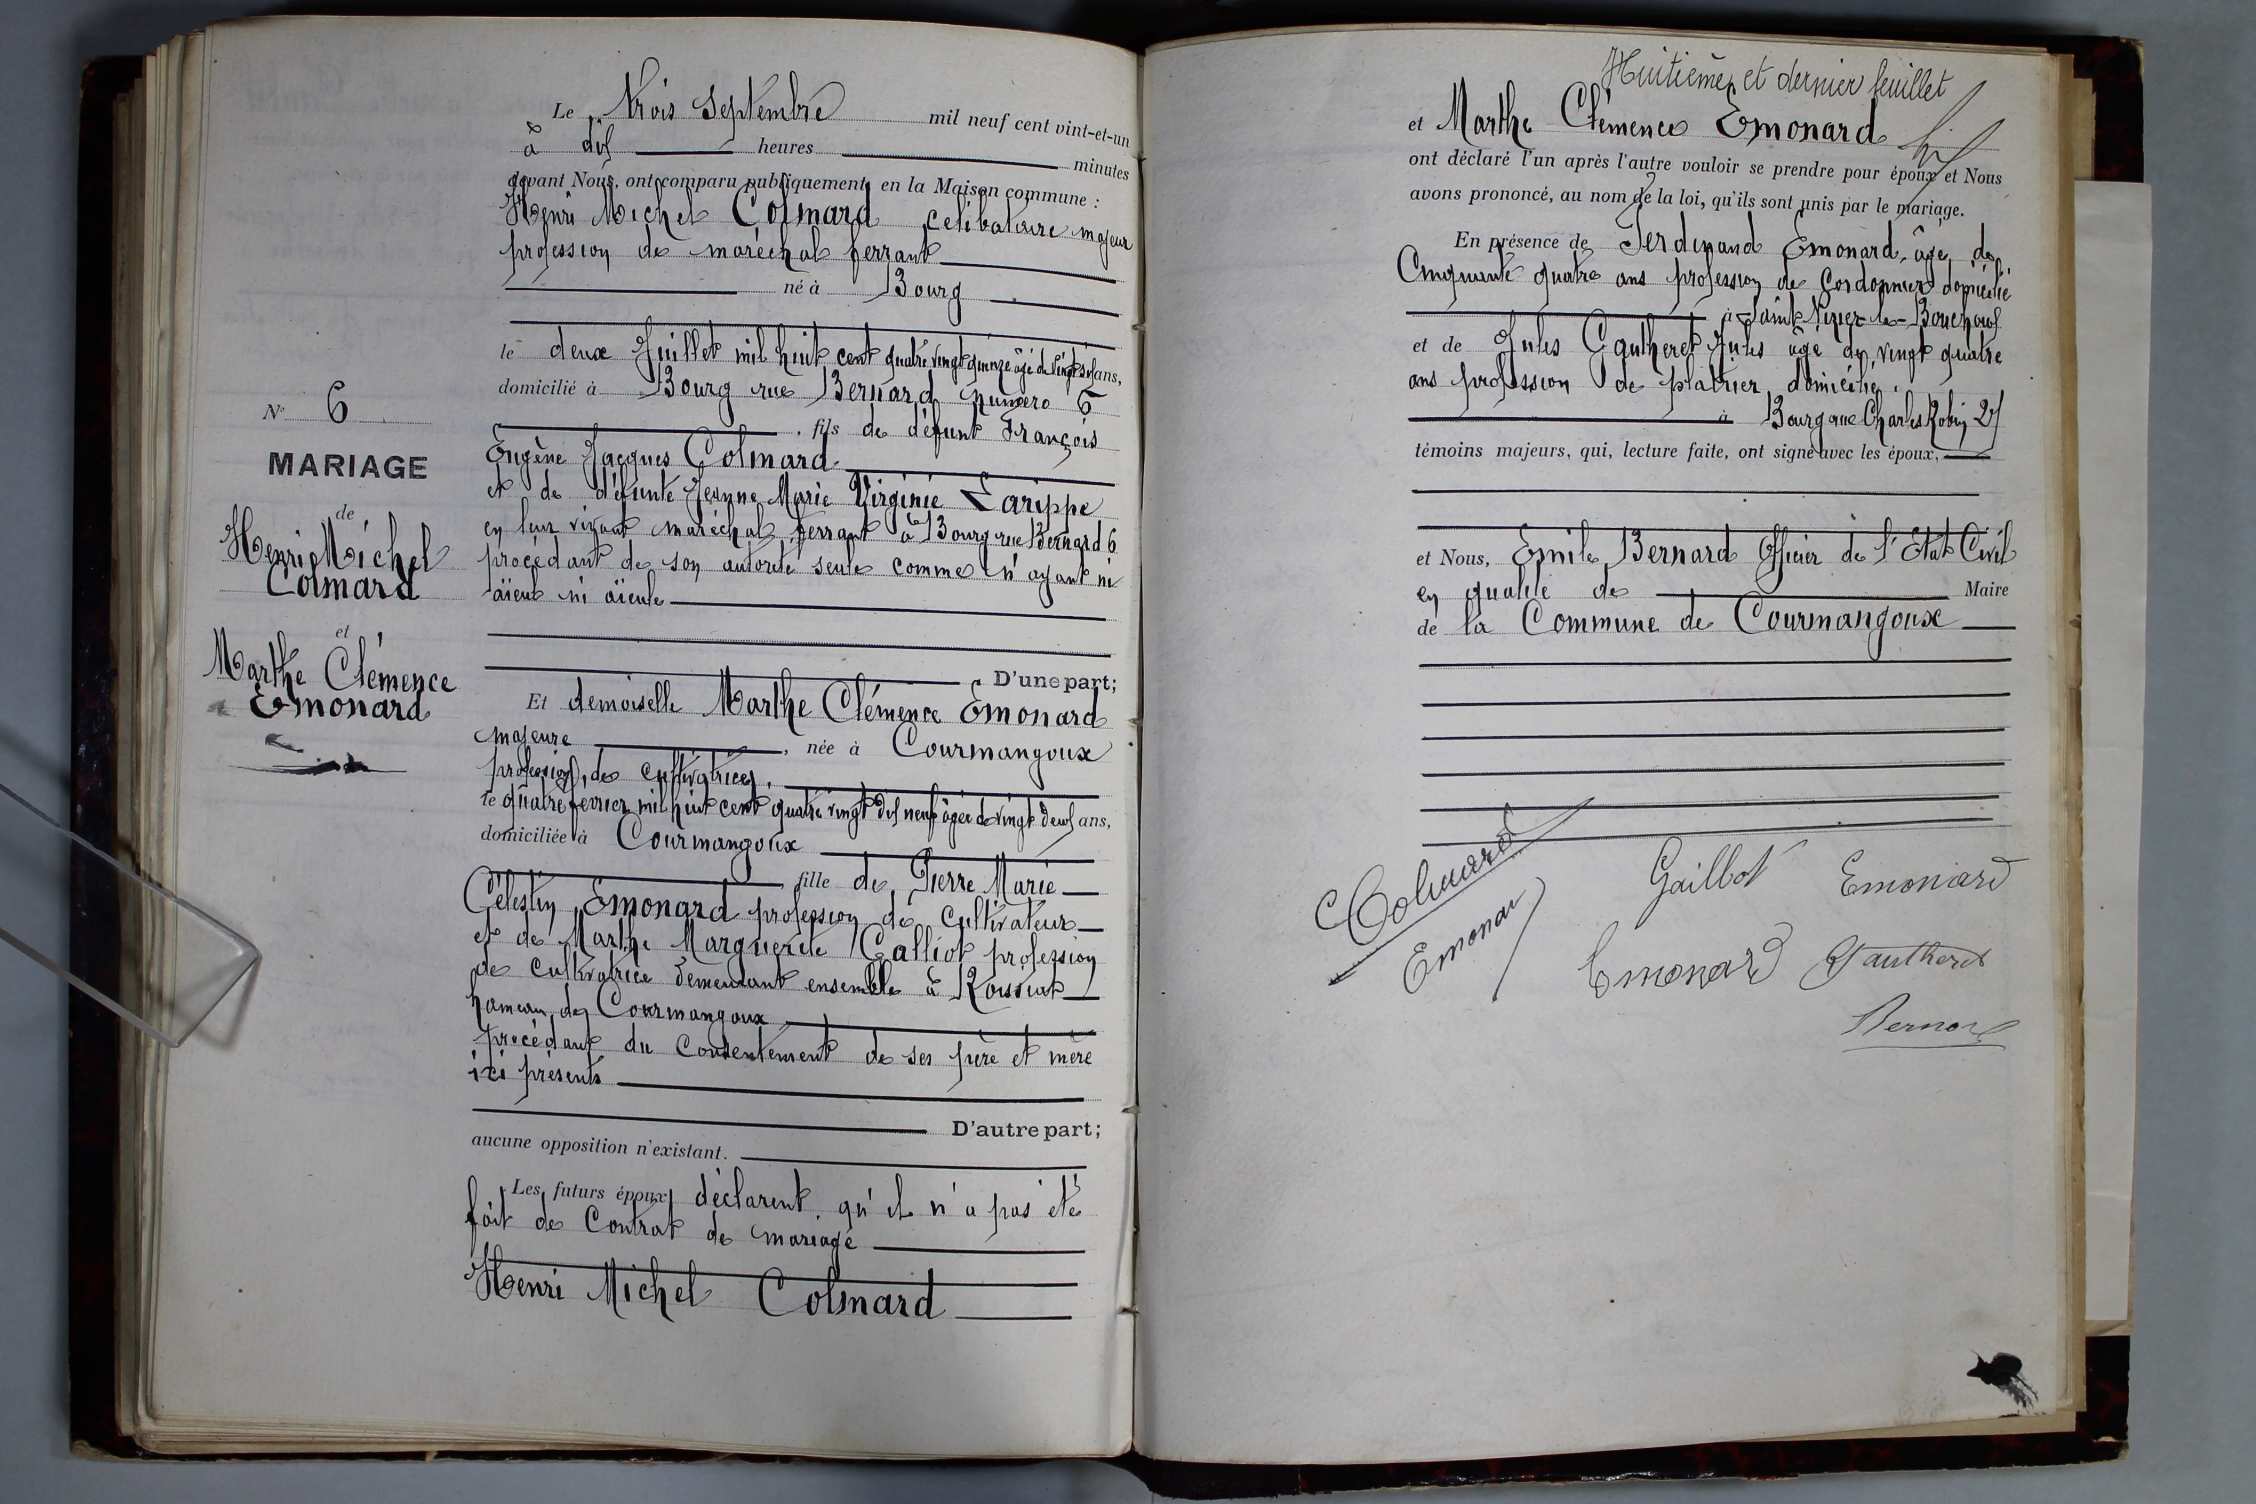 Le Trois Septembre mil neuf cent vint-et-un
à dix heures minutes
devant Nous, ont comparu publiquement en la Maison commune :
Henri Michel Colmard célibataire majeur
profession de maréchal ferrant
né à Bourg
le deux Juillet mil huit cent quatre vingt quinze âgé de vingt six ans,
domicilié à Bourg rue Bernard numéro 6
fils de défunt François
Eugène Jacques Colmard
et de défunte Jeanne Marie Virginie Larippe
en leur vivant maréchal ferrant à Bourg rue Bernard 6
procédant de son autorité seule comme n'ayant ni
aïeul ni aïeule
D'une part;
Et demoiselle Marthe Clémence Emonard
majeure, née à Courmangoux
profession de cultivatrice,
le quatre février mil huit cent quatre vingt dix neuf âgée de vingt deux ans,
domiciliée à Courmangoux
fille de Pierre Marie
Célestin Emonard profession de cultivateur
et de Marthe Marguerite Galliot profession
de cultivatrice demeurant ensemble à Roissiat
hameau de Courmangoux
procédant du consentement de ses père et mère
ici présents
D'autre part;
aucune opposition n'existant.
Les futurs époux déclarent qu'il n'a pas été
fait de contrat de mariage
Henri Michel Colmard
N° 6
MARIAGE
de
Henri Michel
Colmard
et
Marthe Clémence
Emonard
Huitième et dernier feuillet
et Marthe Clémence Emonard
ont déclaré l'un après l'autre vouloir se prendre pour époux et Nous
avons prononcé, au nom de la loi, qu'ils sont unis par le mariage.
En présence de Ferdinand Emonard, âgé de
Cinquante quatre ans profession de Cordonnier domicilié
à Saint Nizier le-Bouchoux
et de Jules Gautheret Jules âgé de vingt quatre
ans profession de platrier domicilié
à Bourg rue Charles Robin 27
témoins majeurs, qui, lecture faite, ont signé avec les époux,
et Nous, Emile Bernard Officier de l'Etat Civil
en qualité de Maire
de la Commune de Courmangoux
Colmard
Gaillot
Emonard
Emonar
Emonard
Gautheret
Bernard